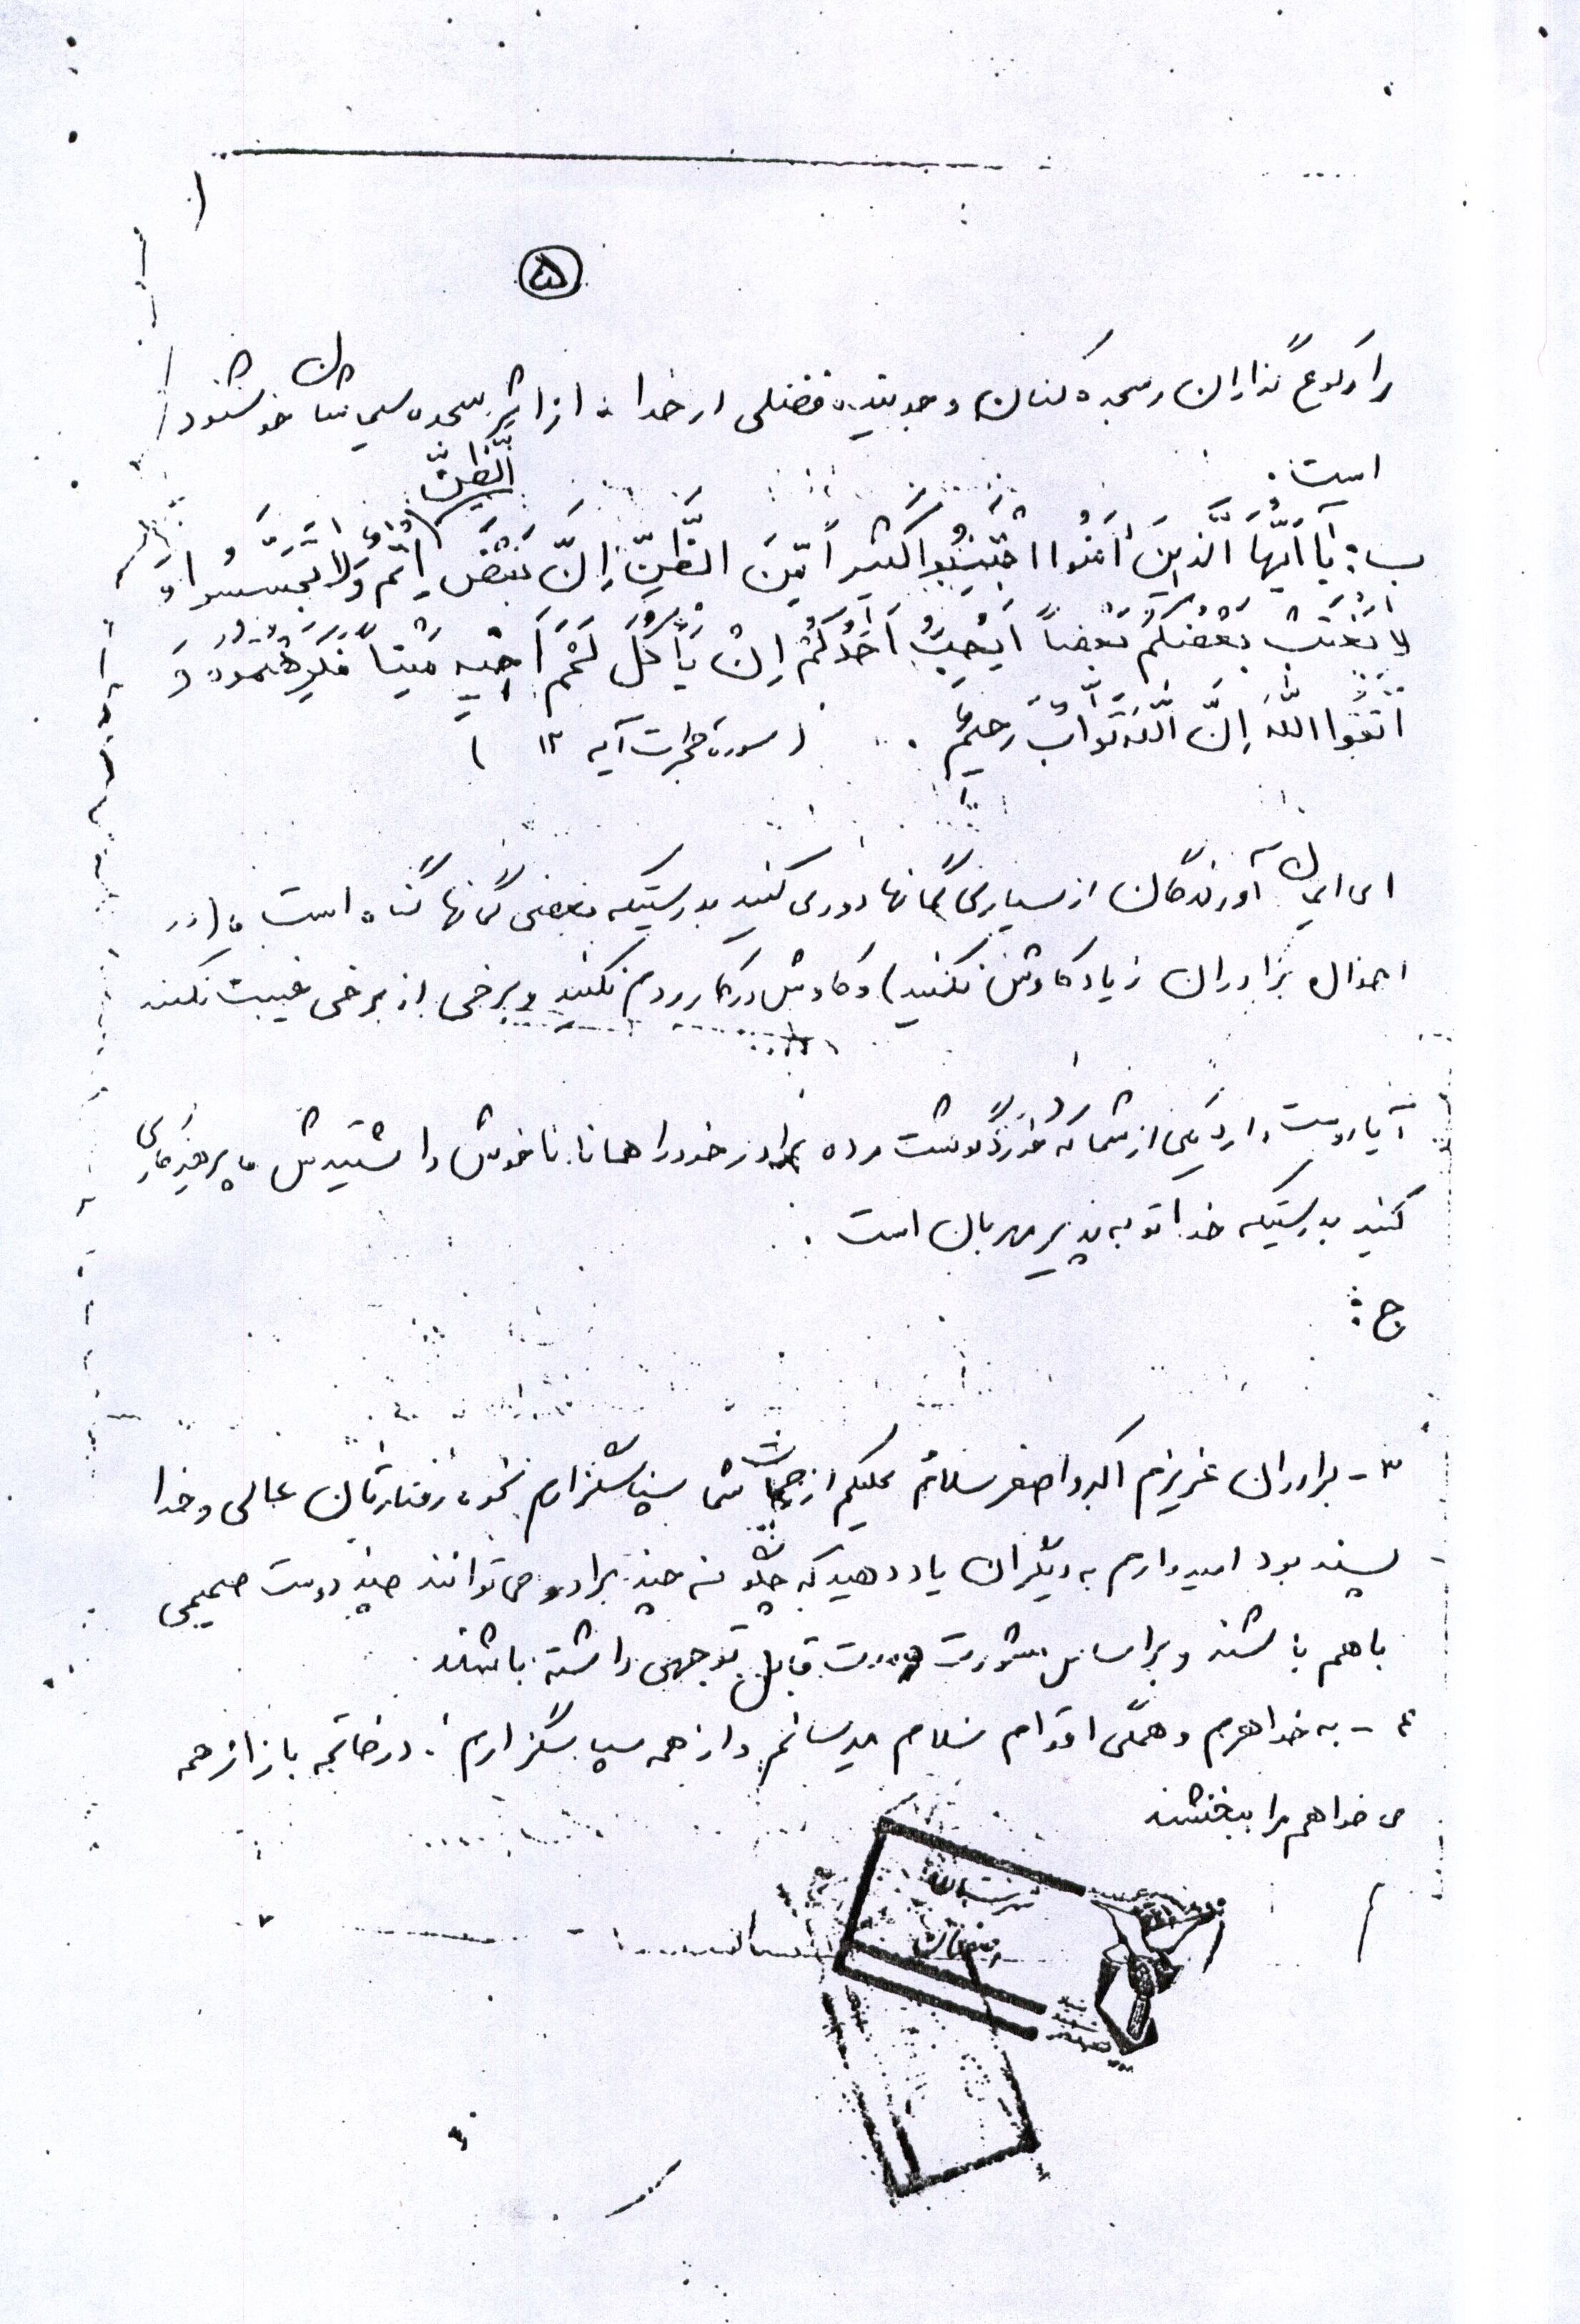 ۵
را رکوع گذاران و سجده کنان و جوینده فضلی از خدا از اثر سجده سیمایشان خوشنود
است.
الظَّنِّ
ب: یٰا اَیُّهَا الَّذینَ اٰمَنُوا اجْتَنِبُوا کَثیراً مِّنَ الظَّنِّ اِنَّ بَعْضَ اِثْمٌ وَلا تَجَسَّسُوا وَ
لا یَغْتَبْ بَعْضُکُمْ بَعْضاً اَیُحِبُّ اَحَدُکُمْ اِنْ یَأْکُلَ لَحْمَ اَخیهِ مَیْتاً فَکَرِهْتُمُوهُ وَ
اتَّقُوا اللّٰهَ اِنَّ اللّٰهَ تَوّابٌ رَحیمٌ. (سوره حجرات آیه ۱۲)
ای ایمان آورندگان از بسیاری گمانها دوری کنید بدرستیکه بعضی گمانها گناه است و (در
احوال برادران زیاد کاوش نکنید) و کاوش در کار مردم نکنید و برخی از برخی غیبت نکنند
آیا دوست دارد یکی از شما که خورد گوشت مرده برادر خود را همانا ناخوش داشتیدش و پرهیزکاری
کنید بدرستیکه خدا توبه پذیر مهربان است.
ج:
۳- برادران عزیزم اکبر و اصغر سلام علیکم از زحمات شما سپاسگزارم نحوه رفتارتان عالی و خدا
پسند بود امیدوارم به دیگران یاد دهید که چگونه چند برادر می توانند چند دوست صمیمی
با هم باشند و بر اساس مشورت قابل توجهی داشته باشند.
۴- به خواهرم و همگی اقوام سلام میرسانم و از همه سپاسگزارم. در خاتمه باز از همه
می خواهم مرا ببخشند